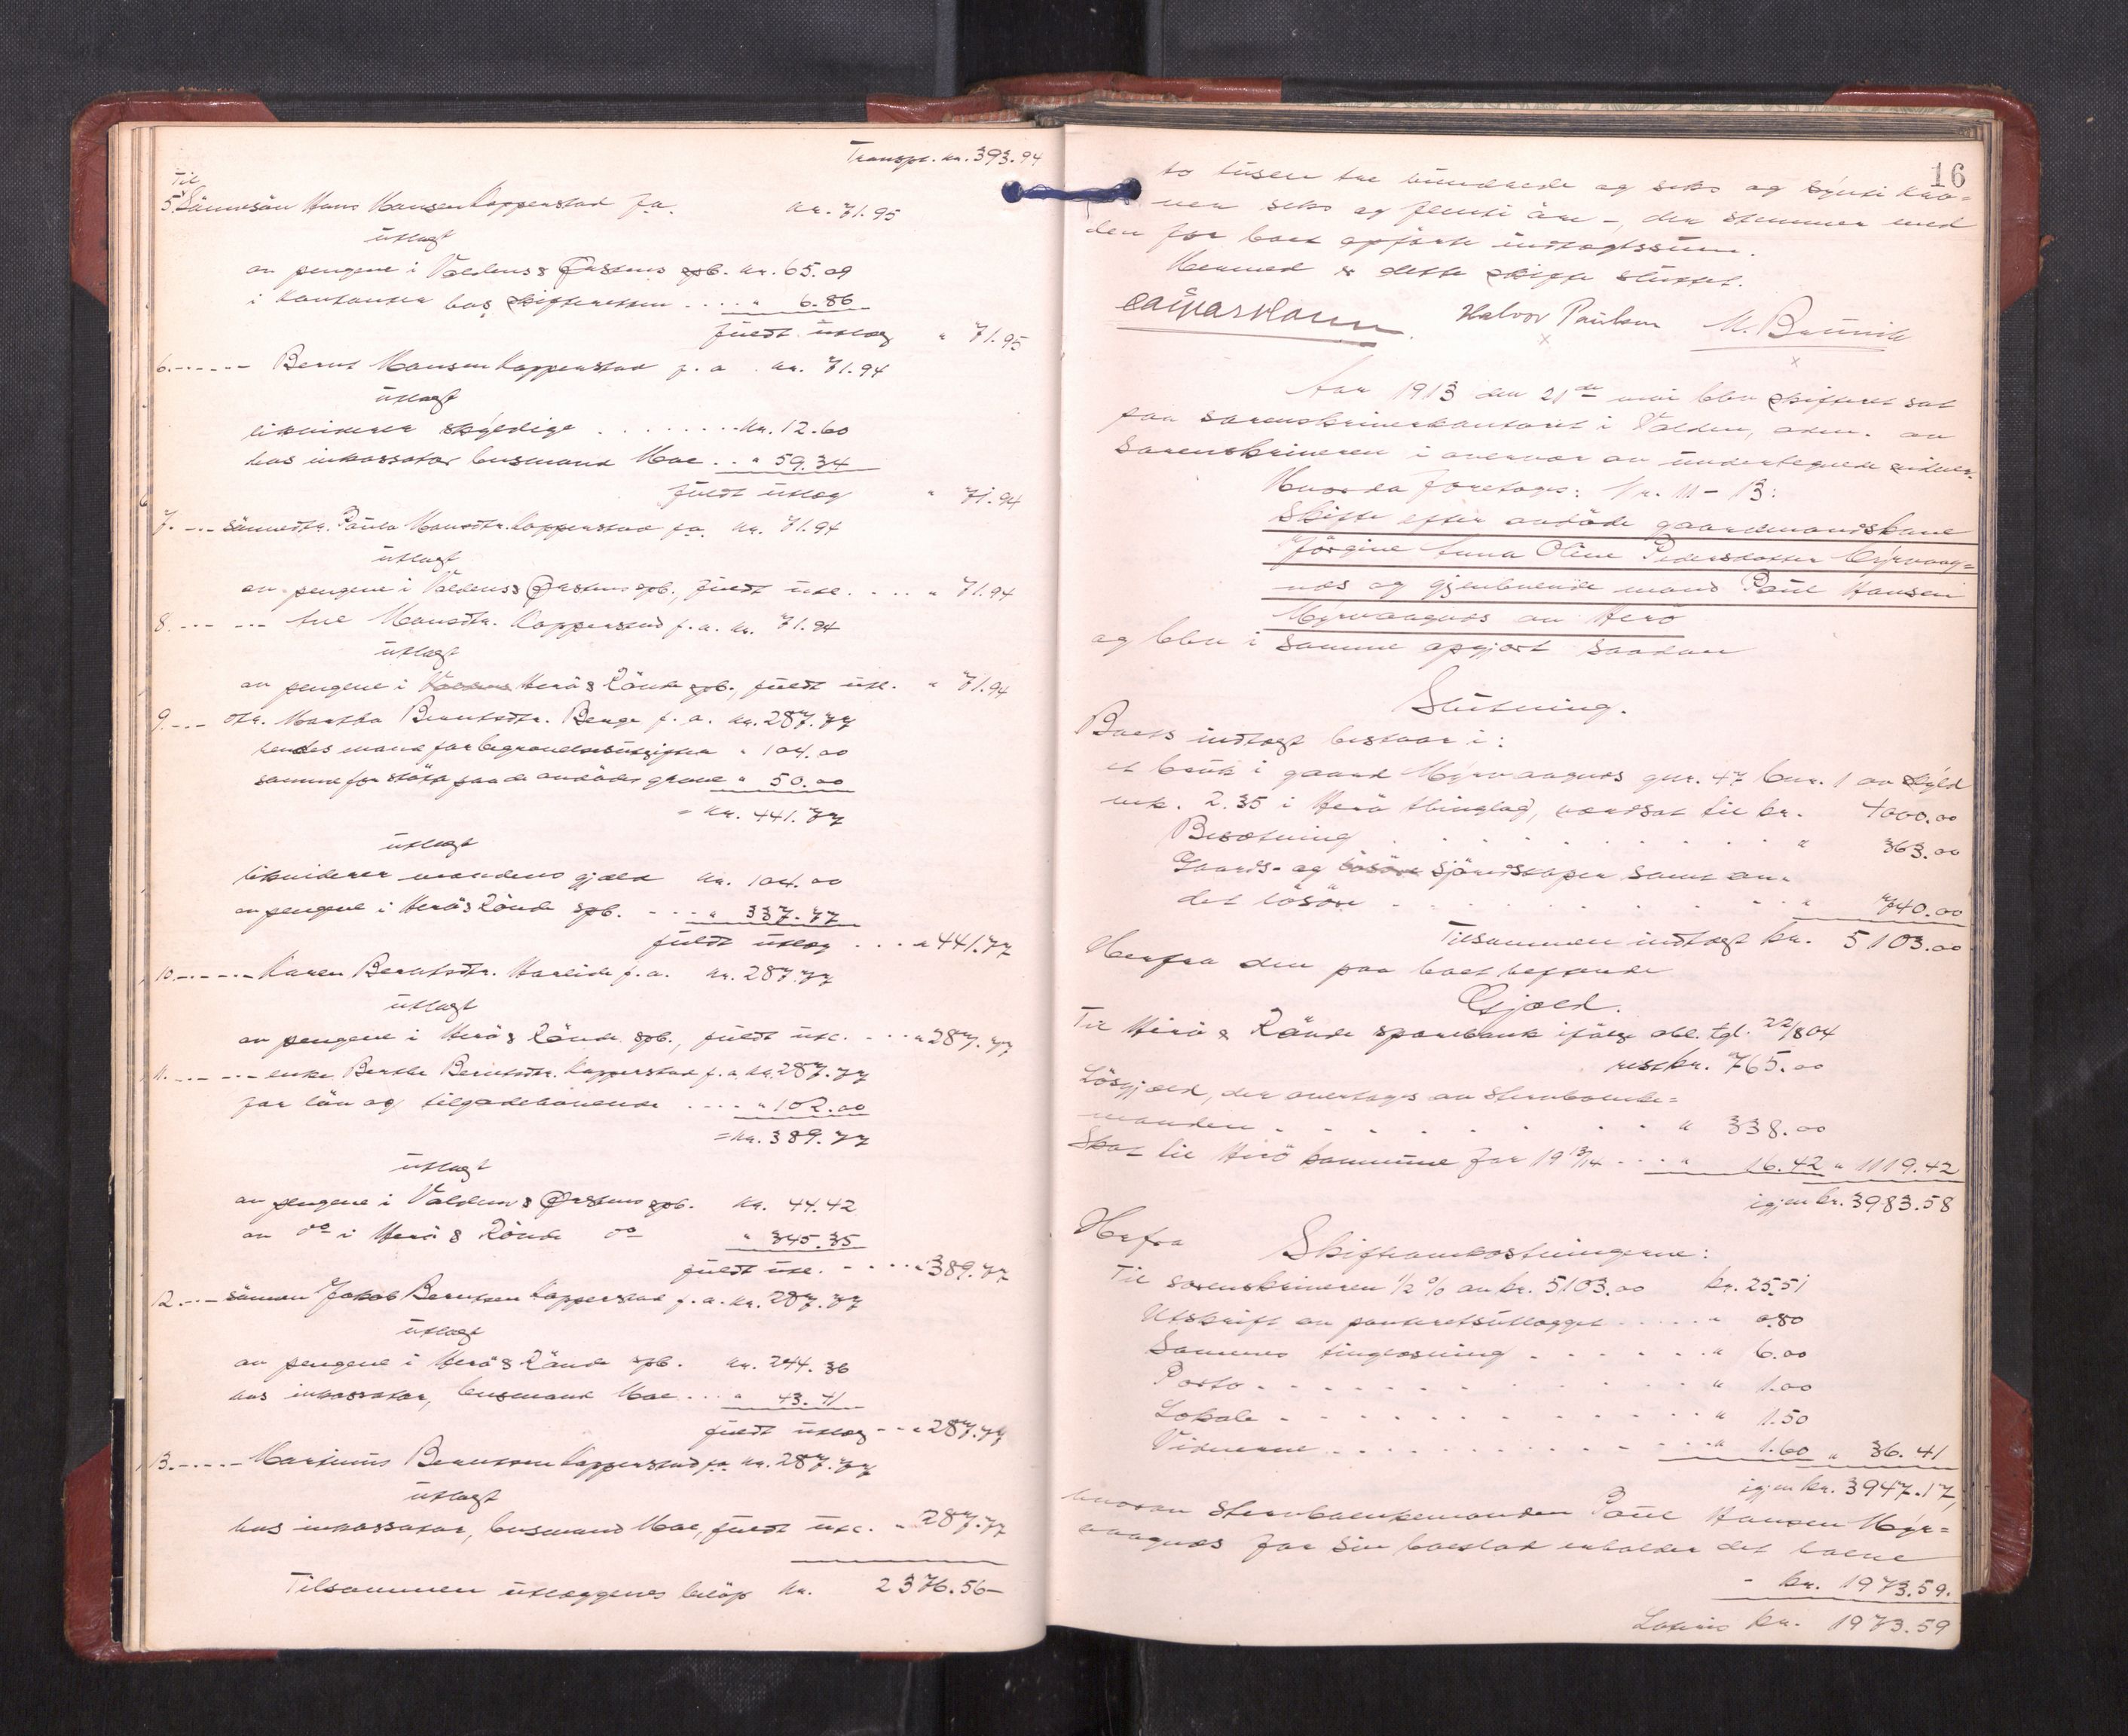 Transpt. kr. 393.94
Til
5. Sønnesøn Hans Hansen Kopperstad f. a. kr. 71.95
utlagt
av pengene i Voldens & Ørstens spb. kr. 65.09
i kontanter hos skifteretten .... " 6.86
fuldt utlæg " 71.95
6. - - - - - Bernt Hansen Kopperstad f. a. kr. 71.94
utlagt
likviderer skyldige . . . . . . . . kr. 12.60
hos inkassator lensmand Moe . . " 59.34
fuldt utlæg " 71.94
7. - - - sønnedtr. Paula Hansdtr. Kopperstad f. a. kr. 71.94
utlagt
av pengene i Voldens & Ørstens spb., fuldt utl. . . . . " 71.94
8. - - - - - - Hansdtr. Kopperstad f. a. kr. 71.94
utlagt
av pengene i Herø & Rønde spb., fuldt utl. " 71.94
9. - - - dtr. Martha Berntsdtr. Berge f. a. kr. 287.77
hendes mand for begravelsesutgifter " 104.00
samme for støtte paa de avdødes grave " 50.00
= kr. 441.77
utlagt
likviderer mandens gjæld kr. 104.00
av pengene i Herø & Rønde spb. - - - " 337.77
fuldt utlæg . . . " 441.77
10. - - - - - Karen Berntsdtr. Hareide f. a. kr. 287.77
utlagt
av pengene i Herø & Rønde spb., fuldt utl. - . . . " 287.77
11. - - - - - enke Berthe Berntsdtr. Kopperstad f. a. kr. 287.77
for løn og tilgodehavende . . . . " 102.00
= kr. 389.77
utlagt
av pengene i Voldens & Ørstens spb. kr. 44.42
av do i Herø & Rønde do " 345.35
fuldt utl. - . . . . " 389.77
12. - - - sønnen Jakob Berntsen Kopperstad f. a. kr. 287.77
utlagt
av pengene i Herø & Rønde spb. kr. 244.36
hos inkassator, lensmand Moe . . . " 43.41
fuldt utlæg - - " 287.77
13. - - - - - Martinus Berntsen Kopperstad f. a. kr. 287.77
utlagt
hos inkassator, lensmand Moe, fuldt utl. " 287.77
Tilsammen utlæggenes beløp kr. 2376.56 -
16
to tusen tre hundrede og seks og sytti kro=
ner seks og femti øre -, der stemmer med
den for boet opførte indtægtssum.
Hermed er dette skifte sluttet.
Halvor Paulsen
Aar 1913 den 21de mai blev skifteret sat
paa sorenskriverkontoret i Volden, adm. av
sorenskriveren i overvær av undertegnede vidner.
Hvorda foretoges: Nr. 11 - 13:
Skifte efter avdøde gaardmandskone
Jørgine Anna Oline Pedersdatter Myrvaag=
nes og gjenlevende mand Paul Hansen
Myrvaagnes av Herø
og blev i samme opgjort saadan
Slutning.
Boets indtægt bestaar i:
et bruk i gaard Myrvaagnes gnr. 47 bnr. 1 av skyld
mk. 2.35 i Herø thinglag, værdsat til kr. 4000.00
Besætning . . . . . . . . . . . " 363.00
Gaards- og løsøre sjøredskaper samt an-
det løsøre . . . . . . . . . . " 740.00
Tilsammen indtægt kr. 5103.00
Herfra den paa boet heftende
Gjæld.
Til Herø & Rønde sparebank ifølge obl. tgl. 22/8 04
rest kr. 765.00
Løsgjæld, der overtages av sterbboenke=
manden . . . . . . . . " 338.00
Skat til Herø kommune for 1913/14 . . . " 16.42 " 1119.42
igjen kr. 3983.58
Herfra Skifteomkostningerne:
Til sorenskriveren 1/2 % av kr. 5103.00 kr. 25.51
Utskrift av panteretsutlægget . . . . . " 0.80
Sammes tinglæsning . . . . . . " 6.00
Porto . . . . . . . . . . . " 1.00
Lokale . . . . . . . . . . . " 1.50
Vidnerne . . . . . . . . . . " 1.60 " 36.41
igjen kr. 3947.17,
hvorav sterbboenkemanden Paul Hansen Myr=
vaagnes for sin boeslod erholder det halve
- kr. 1973.59.
Lateris kr. 1973.59